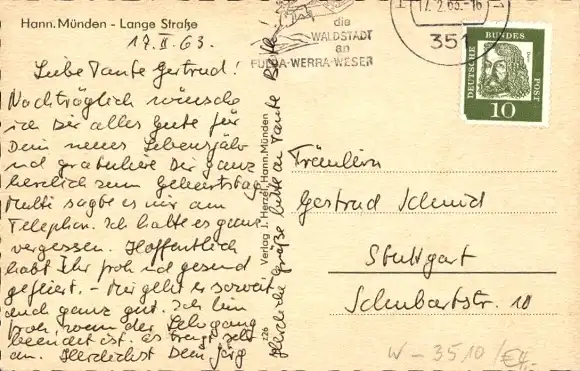 Hann. Münden - Lange Straße
17. II. 63.
Liebe Tante Gertrud!
Nachträglich wünsche
ich Dir alles Gute für
Dein neues Lebensjahr
und gratuliere Dir ganz
herzlich zum Geburtstag
Mutti sagte es mir am
Telephon. Ich hatte es ganz
vergessen. Hoffentlich
habt Ihr froh und gesund
gefeiert. - Mir geht es soweit
auch ganz gut. Ich bin
froh, wenn der Lehrgang
beendet ist. es
an. Herzlichst Dein Jörg
Herzliche Grüße bitte an Tante
226 Verlag J. Herzel, Hann. Münden
die
WALDSTADT
an
FULDA-WERRA-WESER
17.2.63.-16
351
DEUTSCHE BUNDESPOST
10
Fräulein
Gertrud Schmid
Stuttgart
Schubartstr. 10
W - 3510/